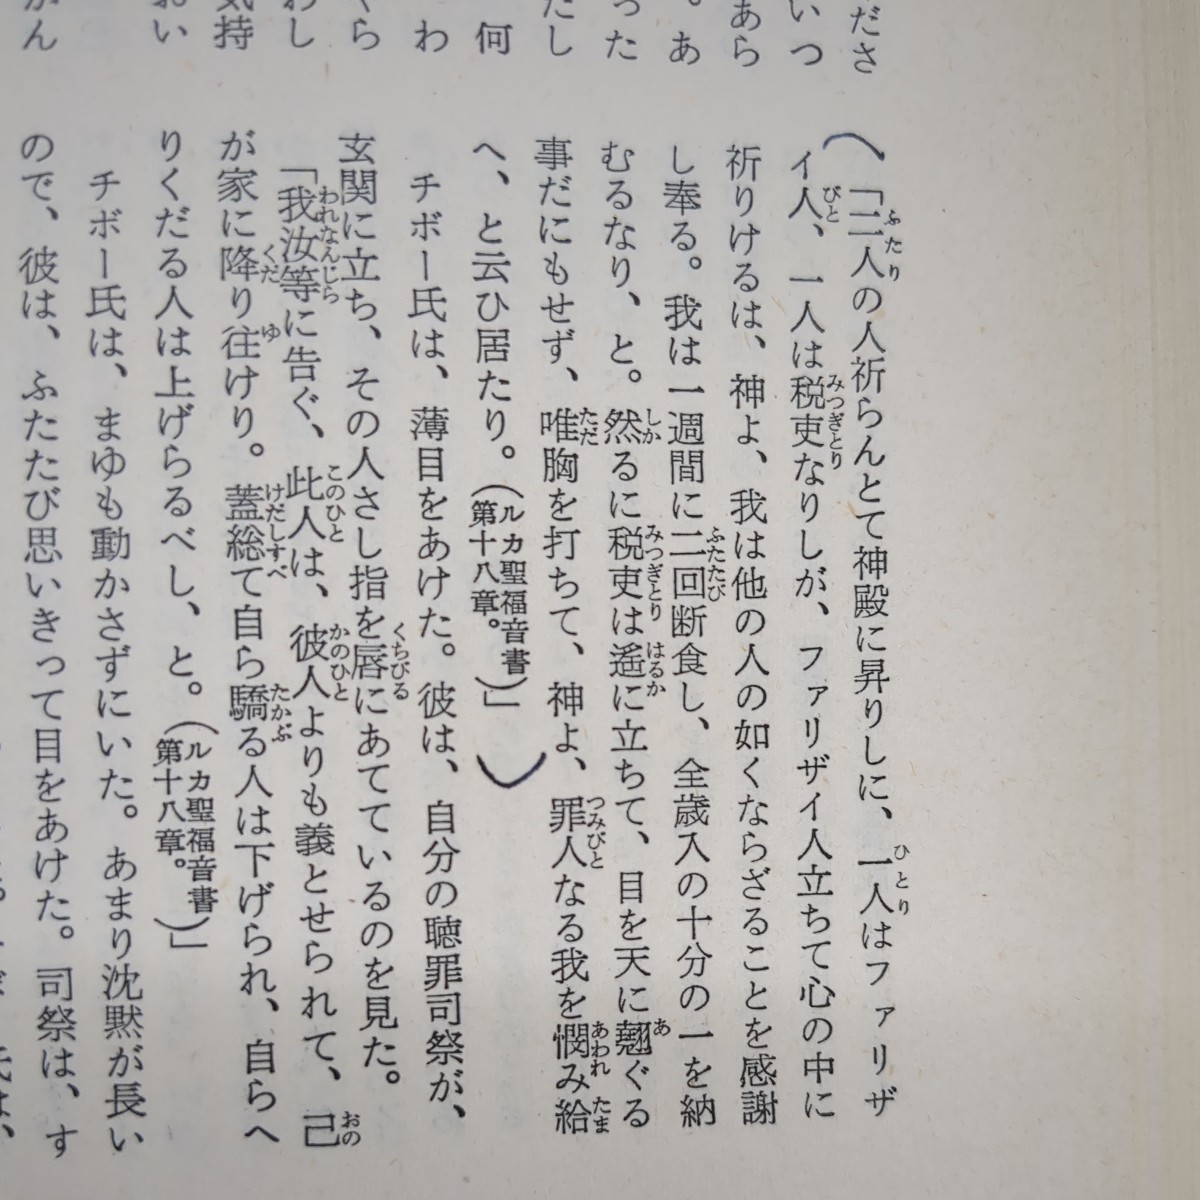 ださ
いつ
あら
。あ
った
たし
何
わ
くら
わし
気持
おい
「二人の人祈らんとて神殿に昇りしに、一人はファリザ
イ人、一人は税吏なりしが、ファリザイ人立ちて心の中に
祈りけるは、神よ、我は他の人の如くならざることを感謝
し奉る。我は一週間に二回断食し、全歳入の十分の一を納
むるなり、と。然るに税吏は遙に立ちて、目を天に翹ぐる
事だにもせず、唯胸を打ちて、神よ、罪人なる我を憫み給
へ、と云ひ居たり。（ルカ聖福音書第十八章。）」
チボー氏は、薄目をあけた。彼は、自分の聴罪司祭が、
玄関に立ち、その人さし指を唇にあてているのを見た。
「我汝等に告ぐ、此人は、彼人よりも義とせられて、己
が家に降り往けり。蓋総て自ら驕る人は下げられ、自らへ
りくだる人は上げらるべし、と。（ルカ聖福音書第十八章。）」
チボー氏は、まゆも動かさずにいた。あまり沈黙が長い
ので、彼は、ふたたび思いきって目をあけた。司祭は、す